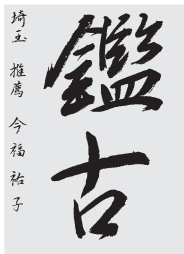 鑑古
埼玉 推薦 今福祐子